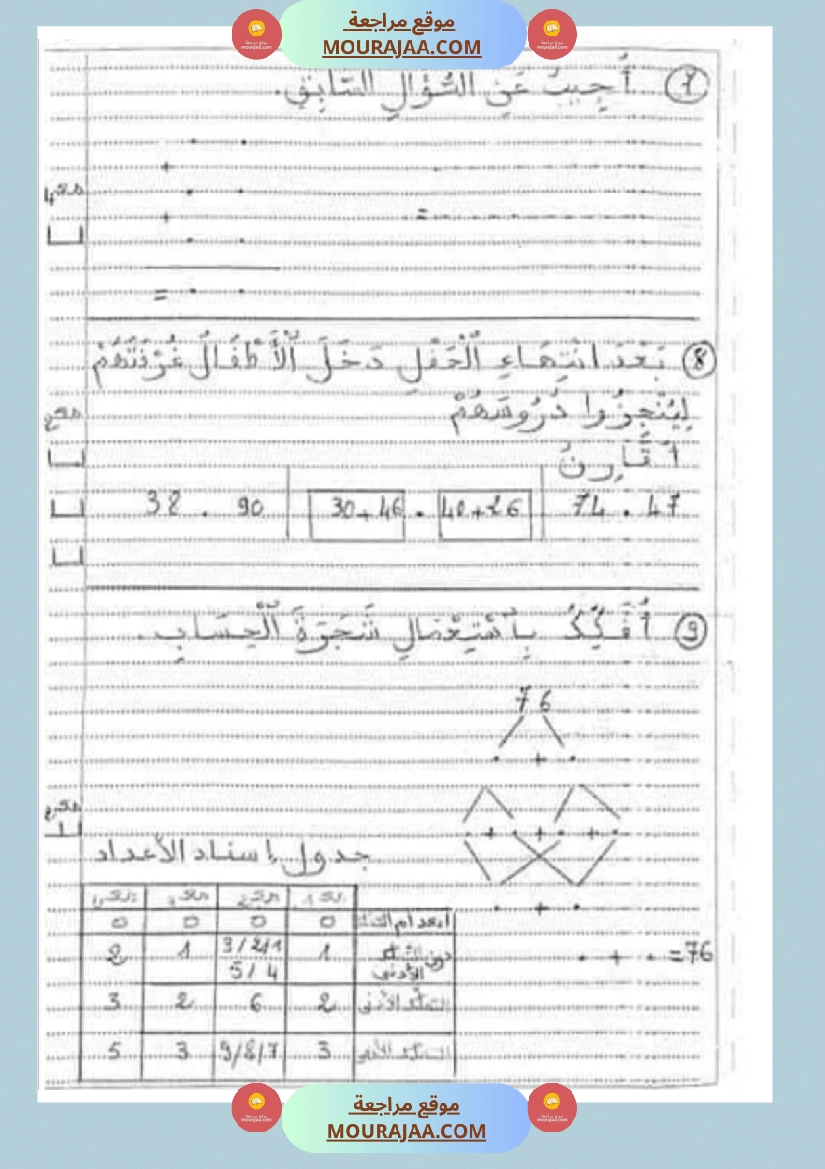 موقع مراجعة
MOURAJAA.COM
7 أُجِيبُ عَنِ السُّؤَالِ السَّابِقِ.
+
+
=
=
8 بَعْدَ انْتِهَاءِ الْحَفْلِ دَخَلَ الْأَطْفَالُ غُرْفَتَهُمْ
لِيُنْجِزُوا دُرُوسَهُمْ
أُقَارِنُ
47 . 74
40+26 . 30+46
90 . 38
9 أُفَكِّكُ بِاسْتِعْمَالِ شَجَرَةِ الْحِسَابِ.
76
. + .
. + . + . + .
. + .
. + . =76
جدول إسناد الأعداد
انعدام التملك 0 0 0 0
دون التملك الأدنى 1 3/2/1 5/4 1 2
التملك الأدنى 2 6 2 3
3 9/8/7 3 5
موقع مراجعة
MOURAJAA.COM